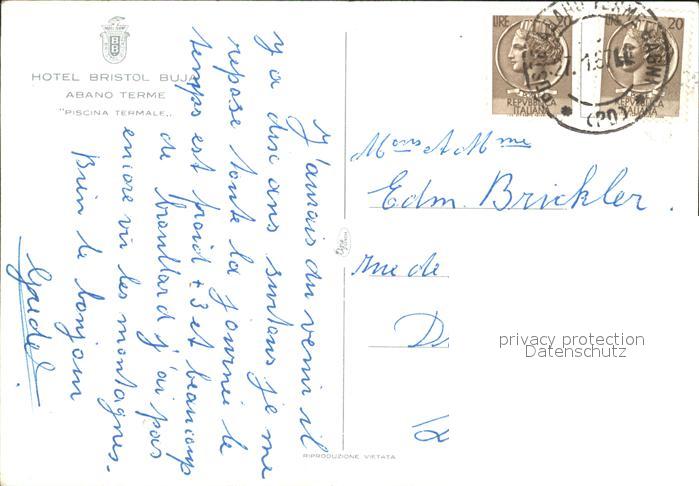 HOTEL BRISTOL BUJA
ABANO TERME
"PISCINA TERMALE"
J'aurais du venir il
y a dix ans surtout je me
repose toute la journée le
temps est froid + 3 et beaucoup
de brouillard j'ai pas
encore vu les montagnes.
Bien le bonjour
LIRE 20
REPVBBLICA
ITALIANA
20
REPVBBLICA
ITALIANA
ABANO TERME
(PD)
Mons et Mme
Edm. Brickler.
rue de
privacy protection
Datenschutz
RIPRODUZIONE VIETATA